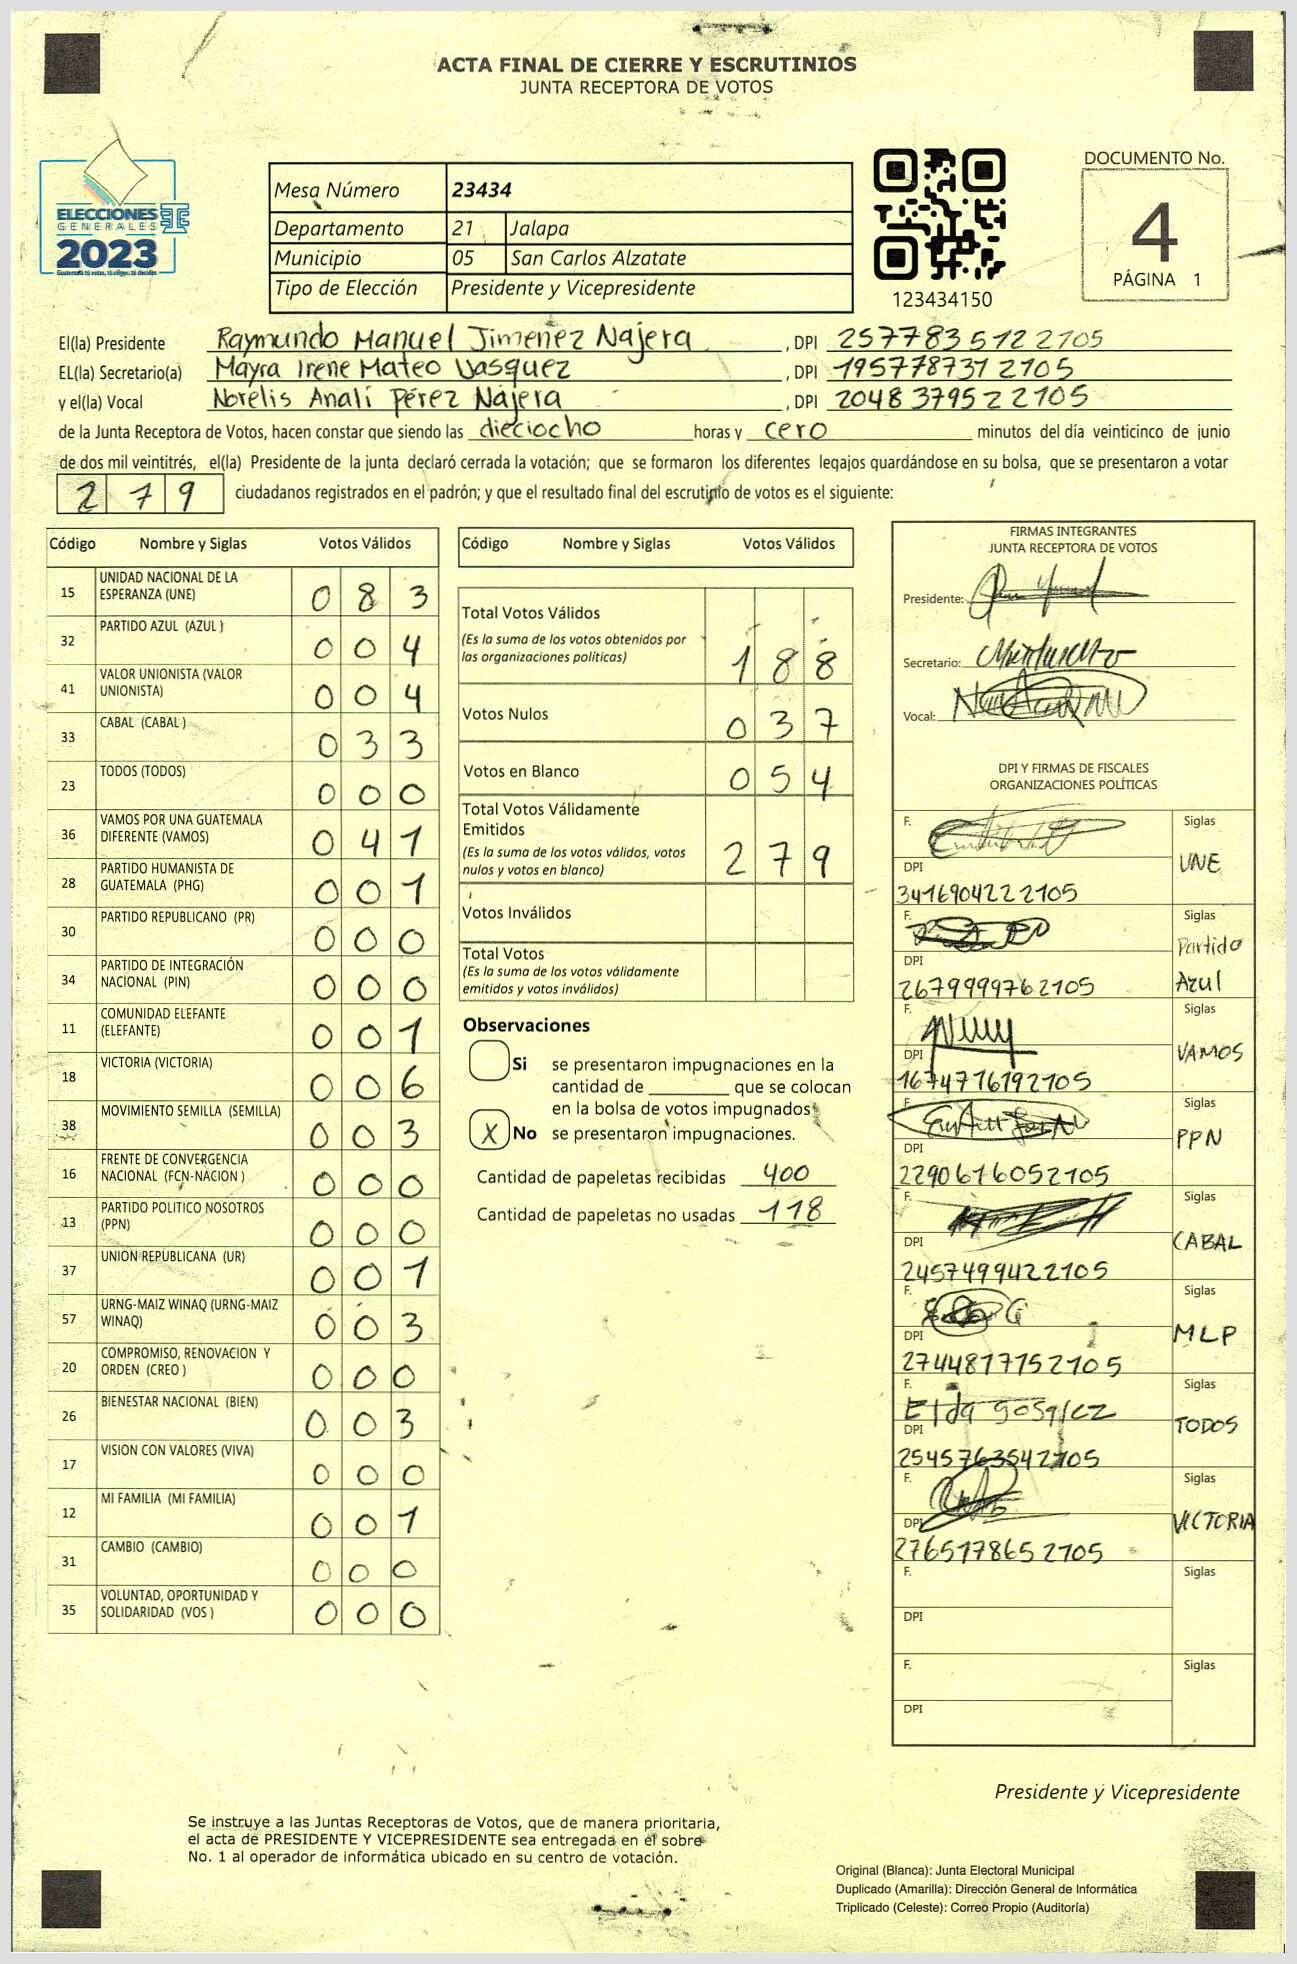 ACTA FINAL DE CIERRE Y ESCRUTINIOS
JUNTA RECEPTORA DE VOTOS
ELECCIONES
GENERALES
2023
Guatemala tú votas, tú eliges, tú decides
Mesa Número 23434
Departamento 21 Jalapa
Municipio 05 San Carlos Alzatate
Tipo de Elección Presidente y Vicepresidente
123434150
DOCUMENTO No.
4
PÁGINA 1
El(la) Presidente Raymundo Manuel Jimenez Najera, DPI 2577835122105
EL(la) Secretario(a) Mayra Irene Mateo Vasquez, DPI 1957787312105
y el(la) Vocal Norelis Analí Pérez Najera, DPI 2048379522105
de la Junta Receptora de Votos, hacen constar que siendo las dieciocho horas y cero minutos del día veinticinco de junio
de dos mil veintitrés, el(la) Presidente de la junta declaró cerrada la votación; que se formaron los diferentes legajos guardándose en su bolsa, que se presentaron a votar
279 ciudadanos registrados en el padrón; y que el resultado final del escrutinio de votos es el siguiente:
Código Nombre y Siglas Votos Válidos
15 UNIDAD NACIONAL DE LA ESPERANZA (UNE) 083
32 PARTIDO AZUL (AZUL ) 004
41 VALOR UNIONISTA (VALOR UNIONISTA) 004
33 CABAL (CABAL ) 033
23 TODOS (TODOS) 000
36 VAMOS POR UNA GUATEMALA DIFERENTE (VAMOS) 041
28 PARTIDO HUMANISTA DE GUATEMALA (PHG) 001
30 PARTIDO REPUBLICANO (PR) 000
34 PARTIDO DE INTEGRACIÓN NACIONAL (PIN) 000
11 COMUNIDAD ELEFANTE (ELEFANTE) 001
18 VICTORIA (VICTORIA) 006
38 MOVIMIENTO SEMILLA (SEMILLA) 003
16 FRENTE DE CONVERGENCIA NACIONAL (FCN-NACION ) 000
13 PARTIDO POLITICO NOSOTROS (PPN) 000
37 UNION REPUBLICANA (UR) 001
57 URNG-MAIZ WINAQ (URNG-MAIZ WINAQ) 003
20 COMPROMISO, RENOVACION Y ORDEN (CREO ) 000
26 BIENESTAR NACIONAL (BIEN) 003
17 VISION CON VALORES (VIVA) 000
12 MI FAMILIA (MI FAMILIA) 001
31 CAMBIO (CAMBIO) 000
35 VOLUNTAD, OPORTUNIDAD Y SOLIDARIDAD (VOS ) 000
Código Nombre y Siglas Votos Válidos
Total Votos Válidos 188
(Es la suma de los votos obtenidos por
las organizaciones políticas)
Votos Nulos 037
Votos en Blanco 054
Total Votos Válidamente
Emitidos 279
(Es la suma de los votos válidos, votos
nulos y votos en blanco)
Votos Inválidos
Total Votos
(Es la suma de los votos válidamente
emitidos y votos inválidos)
Observaciones
Si se presentaron impugnaciones en la
cantidad de que se colocan
en la bolsa de votos impugnados
X No se presentaron impugnaciones.
Cantidad de papeletas recibidas 400
Cantidad de papeletas no usadas 118
FIRMAS INTEGRANTES
JUNTA RECEPTORA DE VOTOS
Presidente:
Secretario:
Vocal:
DPI Y FIRMAS DE FISCALES
ORGANIZACIONES POLÍTICAS
F. Siglas
UNE
DPI
3416904222105
F. Siglas
Partido
Azul
DPI
2679999762105
F. Siglas
VAMOS
DPI
1674716192105
F. Siglas
PPN
DPI
2290616052105
F. Siglas
CABAL
DPI
2457499422105
F. Siglas
MLP
DPI
2744817152105
F. Siglas
TODOS
DPI
2545763542105
F. Siglas
VICTORIA
DPI
2765178652105
F. Siglas
DPI
F. Siglas
DPI
Presidente y Vicepresidente
Se instruye a las Juntas Receptoras de Votos, que de manera prioritaria,
el acta de PRESIDENTE Y VICEPRESIDENTE sea entregada en el sobre
No. 1 al operador de informática ubicado en su centro de votación.
Original (Blanca): Junta Electoral Municipal
Duplicado (Amarilla): Dirección General de Informática
Triplicado (Celeste): Correo Propio (Auditoría)